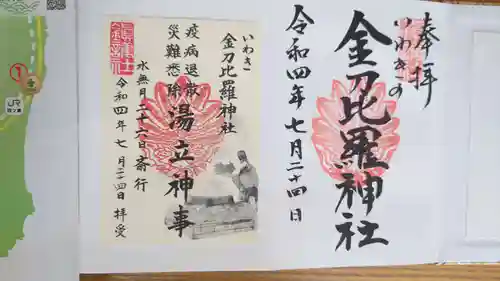 奉拝
いわきの
金刀比羅神社
令和四年七月二十四日
いわき
金刀比羅神社
疫病退散
災難悉除
湯立神事
水無月二十六日斎行
令和四年七月二四日拝受
JR